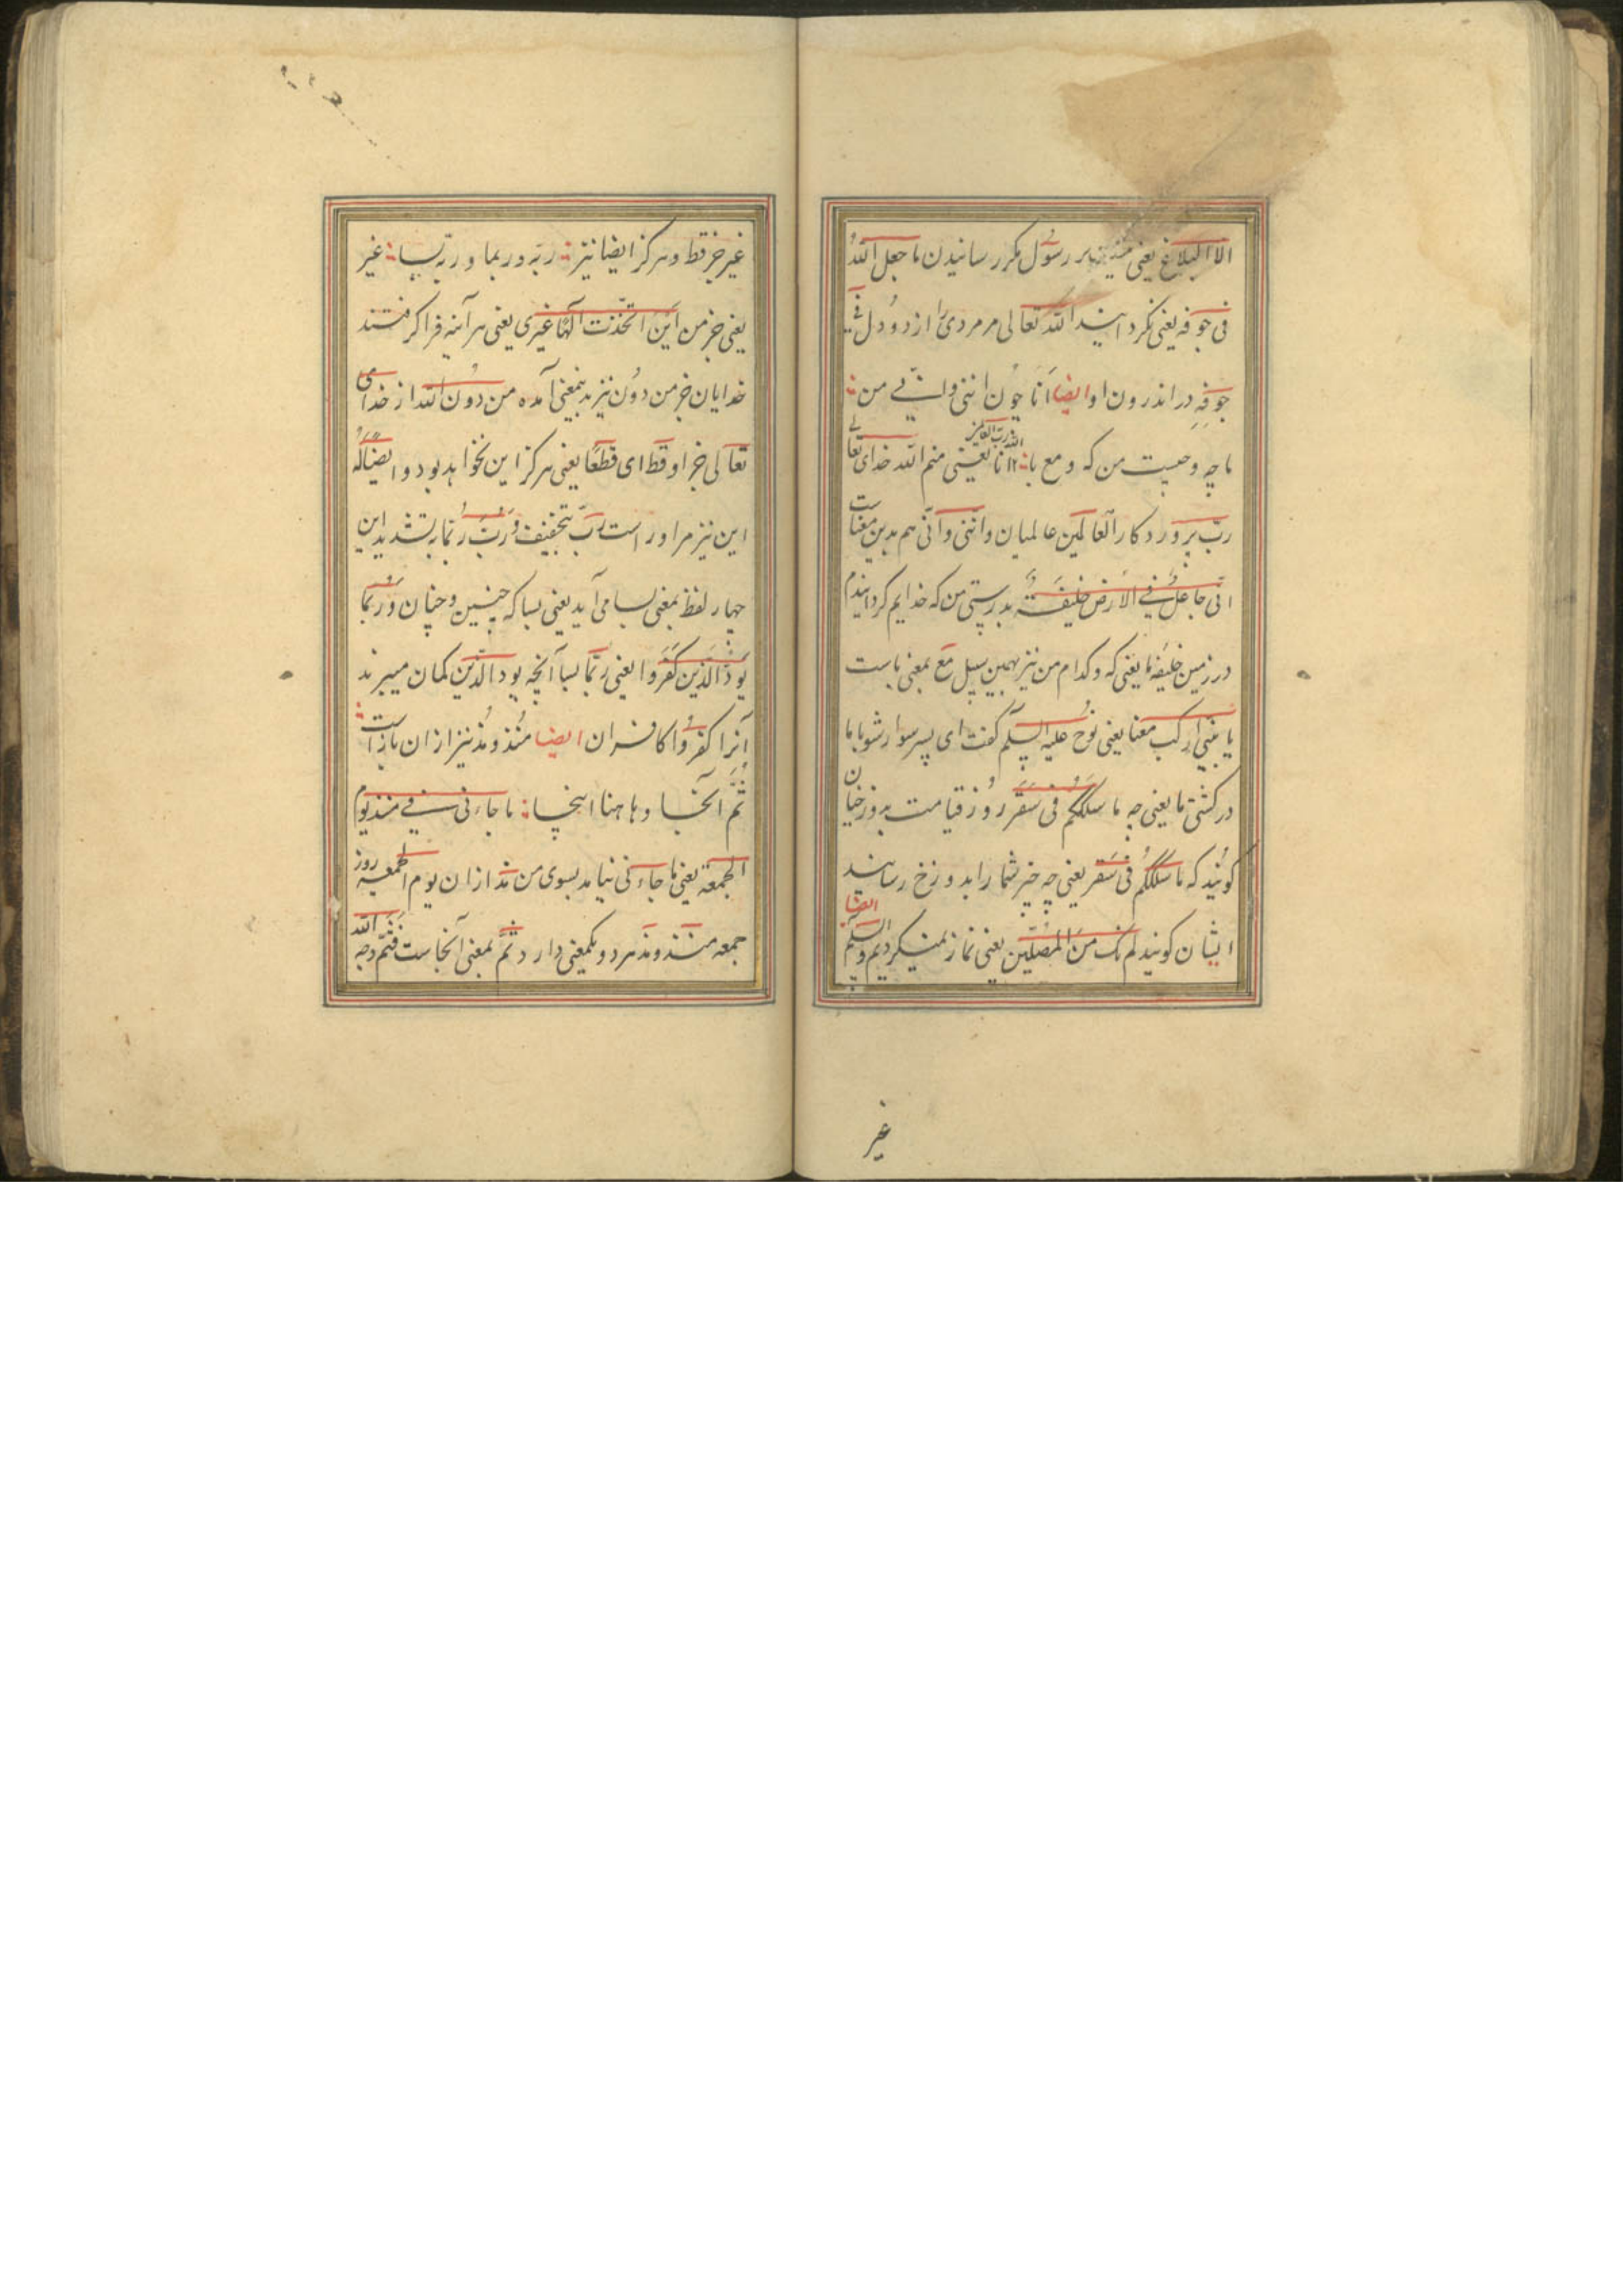 الا البلاغ یعنی نیست بر رسول مکر رسانیدن ما جعل اللهُ
فی جوفه یعنی نکردانید الله تعالی مر مردی را از دو دل فی
جوفِهِ در اندرون او ایضا اَنا چون اننی وانّی من
ما چه وچیست من که و مع با انا یعنی منم الله خدای تعالی
الله ربّ العالمین
ربّ پروردکار العالمین عالمیان واننی وانّی هم بدین معناست
انّی جاعلٌ فی الارض خلیفةً بدرستی من که خدایم کردانیدم
در زمین خلیفه ما یعنی که وکدام من نیز بهمین سبیل مَع بمعنی باست
یا بنی ارکب معنا یعنی نوح علیه السلم گفت ای پسر سوار شو با ما
در کشتی ما یعنی چه ما سلککم فی سَقَر روز قیامت بدوزخیان
کویند که ما سلککُم فی سَقَر یعنی چه چیز شما را بدوزخ رسانید
ایشان کویند لم نک منَ المُصَلّین یعنی نماز نمیکردیم والسلم ایضا
غیر
غیر جز قط وهرکز ایضا نیز ربَه وربما و ربّه بسا غیر
یعنی جز من اَیَن اتخذت الهًا غیری یعنی هر آینه فرا کرفتند
خدایان جز من دون نیز بدینمعنی آمده من دون الله از خدای
تعالی جز او قط ای قطعًا یعنی هرکز این نخواهد بود و ایضًا لهُ
این نیز مر اوراست ربَ بتخفیف ورَبَّ ربّما بتشدید این
چهار لفظ بمعنی بسا می آید یعنی بسا که چنین وچنان ورُبَما
یَودّ الّذین کَفَروا یعنی ربَما بسا آنچه یود الّذین کمان میبرند
آنرا کفروا کافران ایضا منُذ ومُذ نیز از ان باز است
ثَمَّ آنجا وهاهنا اینجا ما جاءنی فی منذ یوم
الجمعة یعنی ما جاءنی نیامد بسوی من مذ از ان یوم الجمعة روز
جمعه منذ ومذ هر دو یکمعنی دارد ثَمَّ بمعنی آنجاست فثَمّ وجه الله